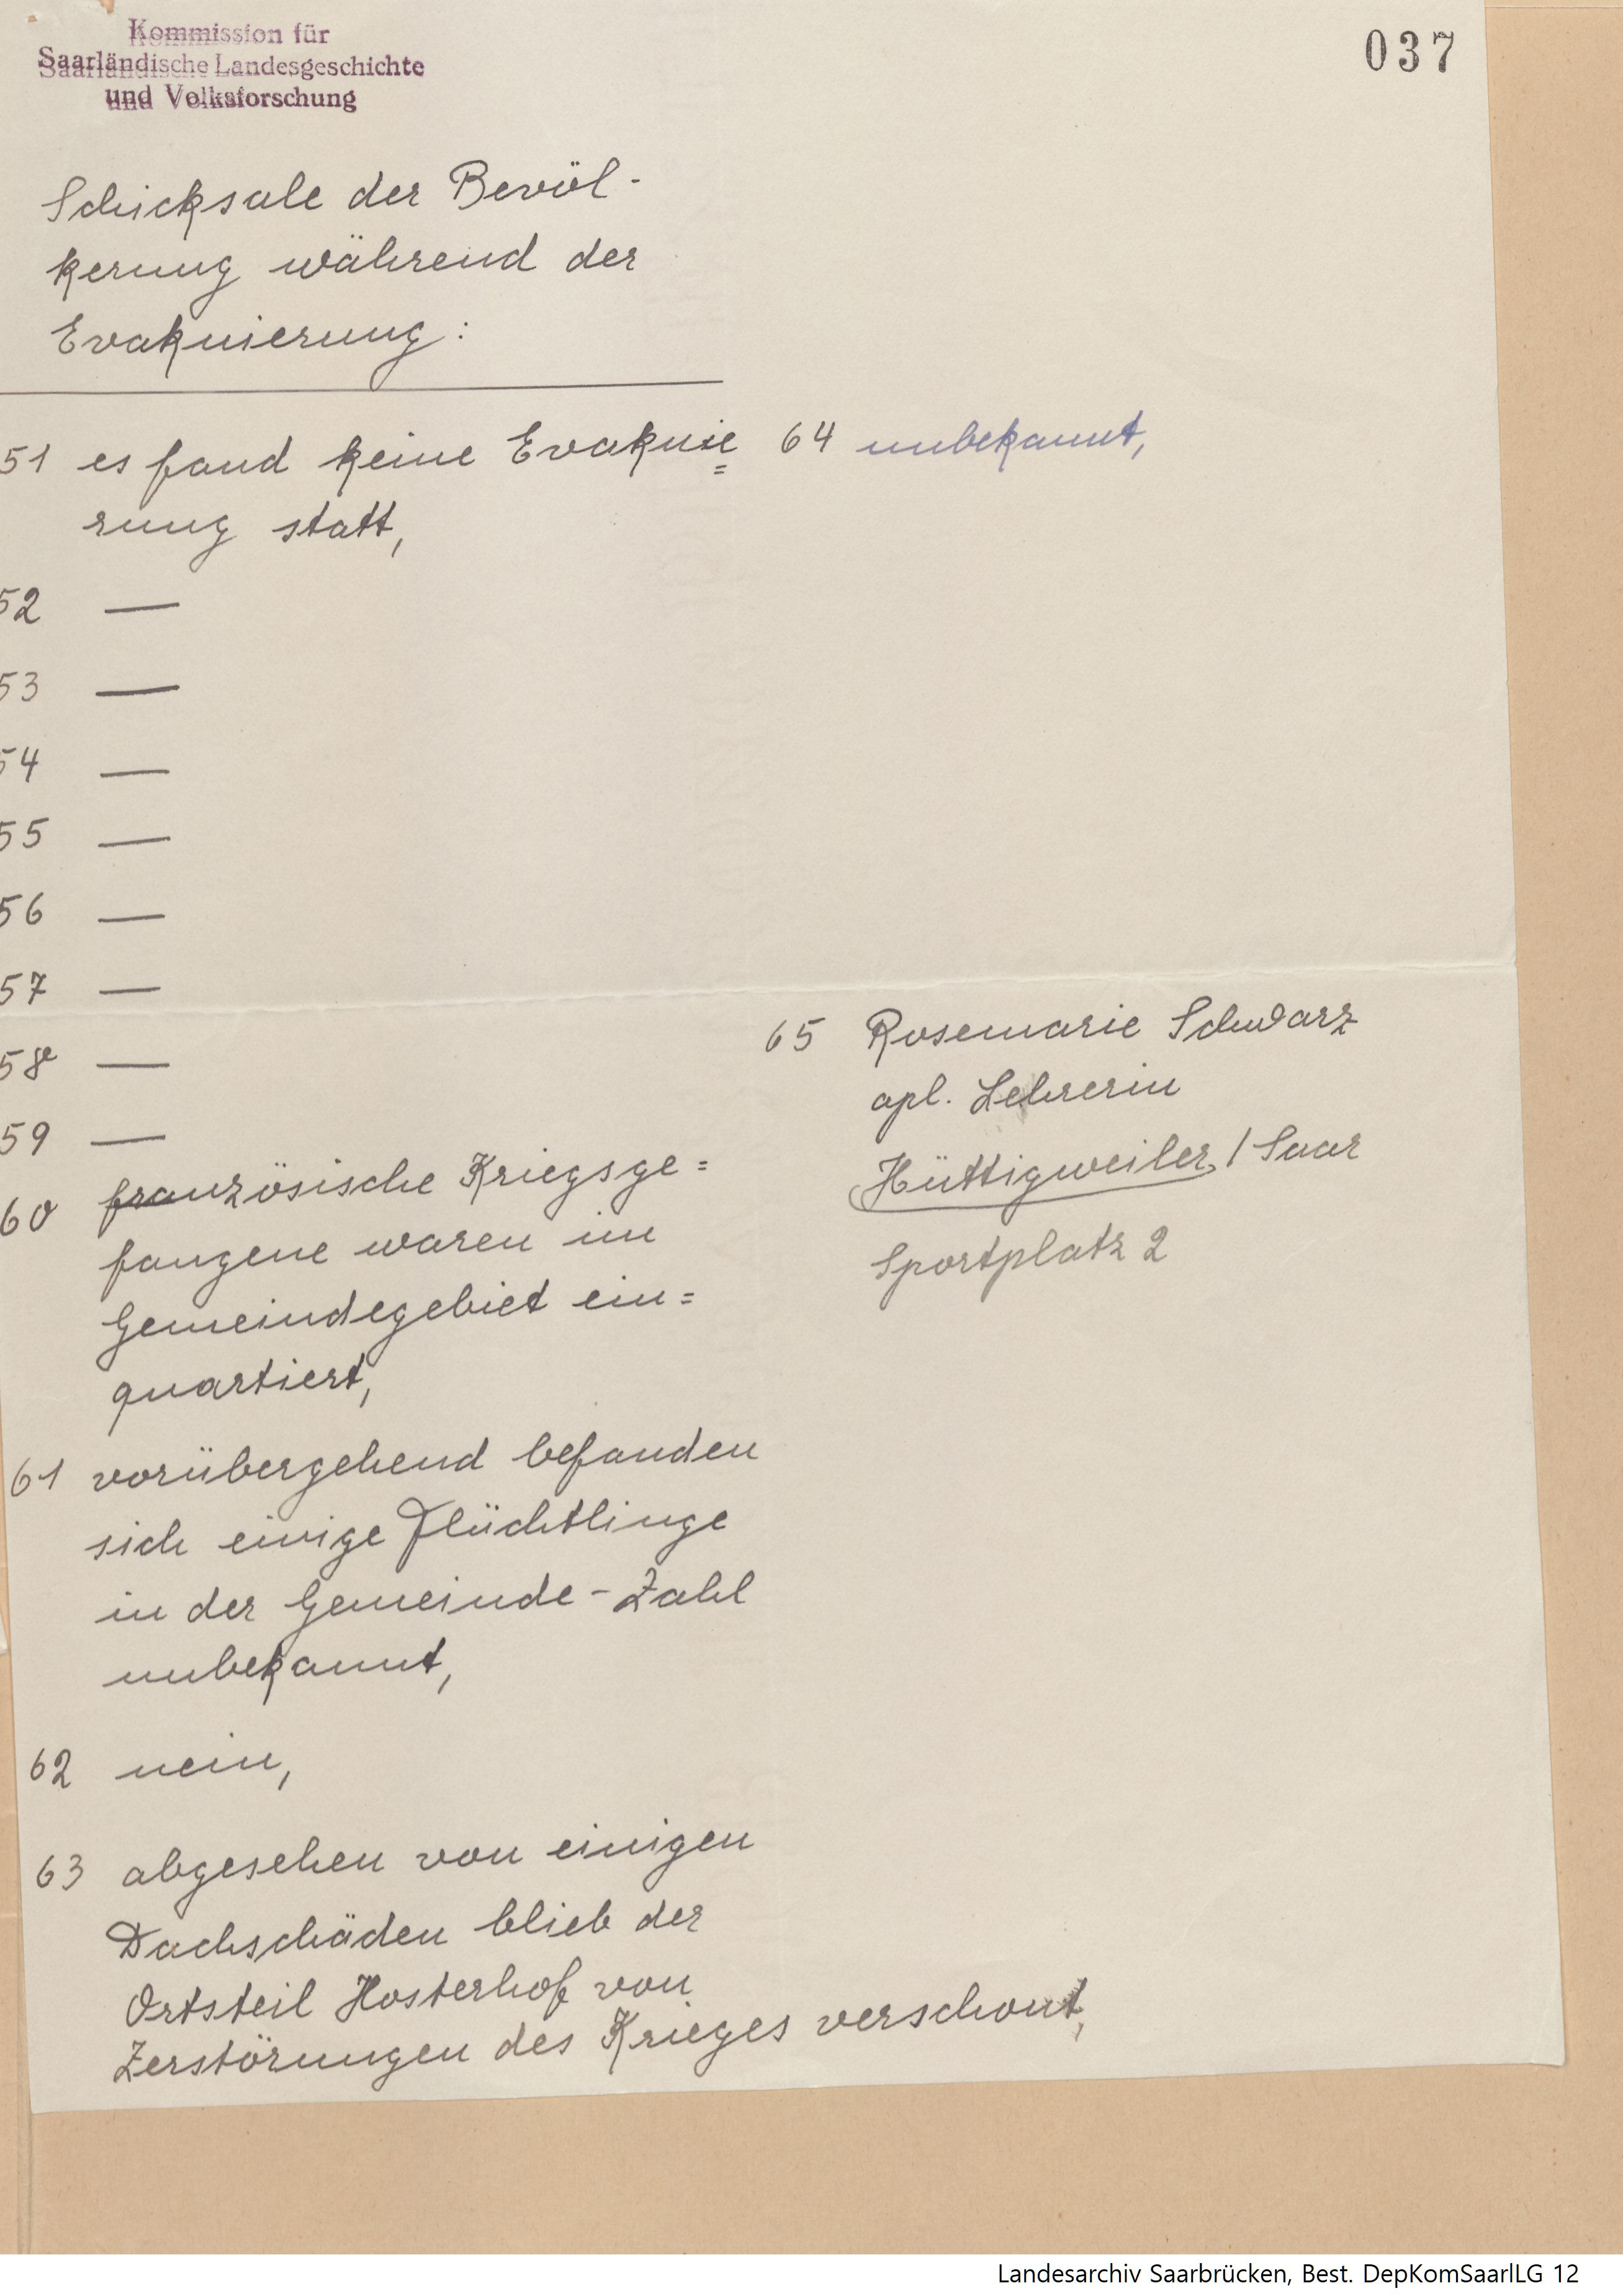 Kommission für
Saarländische Landesgeschichte
und Volksforschung
037
Schicksale der Bevöl-
kerung während der
Evakuierung:
51 es fand keine Evakuie=
rung statt,
52 —
53 —
54 —
55 —
56 —
57 —
58 —
59 —
60 französische Kriegsge=
fangene waren im
Gemeindegebiet ein=
quartiert,
61 vorübergehend befanden
sich einige Flüchtlinge
in der Gemeinde - Zahl
unbekannt,
62 nein,
63 abgesehen von einigen
Dachschäden blieb der
Ortsteil Hosterhof von
Zerstörungen des Krieges verschont,
64 unbekannt,
65 Rosemarie Schwarz
apl. Lehrerin
Hüttigweiler / Saar
Sportplatz 2
Landesarchiv Saarbrücken, Best. DepKomSaarlLG 12